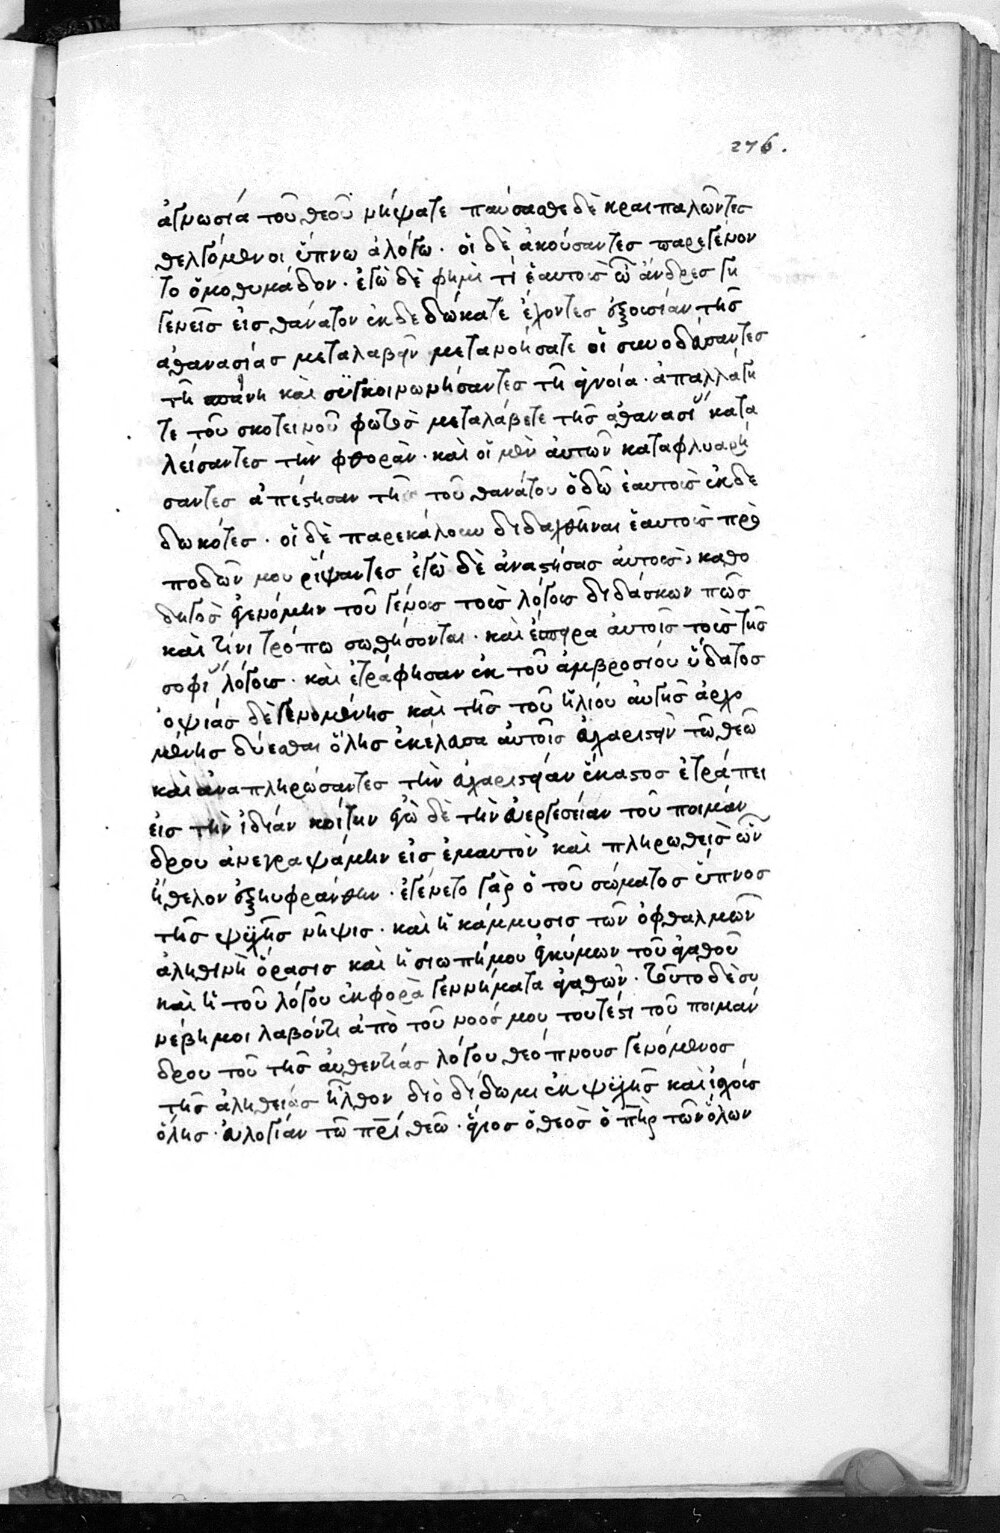 276.
ἀγνωσία τοῦ θεοῦ νήψατε παύσασθε δὲ κραιπαλῶντες
θελγόμενοι ὕπνω ἀλόγω · οἱ δὲ ἀκούσαντες παρεγένον
το ὁμοθυμάδον · ἐγὼ δὲ φημὶ τί ἑαυτοὺς ὦ ἄνδρες γη
γενεῖς εἰς θάνατον ἐκδεδώκατε ἔχοντες ἐξουσίαν τῆς
ἀθανασίας μεταλαβεῖν μετανοήσατε οἱ συνοδεύσαντες
τῆ πλάνη καὶ συγκοινωνήσαντες τῆ ἀγνοία · ἀπαλλάγη
τε τοῦ σκοτεινοῦ φωτὸς μεταλάβετε τῆς ἀθανασίας κατα
λείψαντες τὴν φθορὰν · καὶ οἱ μὲν αὐτῶν καταφλυαρή
σαντες ἀπέστησαν τῆ τοῦ θανάτου ὁδῶ ἑαυτοὺς ἐκδε
δωκότες · οἱ δὲ παρεκάλουν διδαχθῆναι ἑαυτοὺς πρὸ
ποδῶν μου ῥίψαντες ἐγὼ δὲ ἀναστήσας αὐτοὺς, καθο
δηγὸς ἐγενόμην τοῦ γένους τοὺς λόγους διδάσκων πῶς
καὶ τίνι τρόπω σωθήσονται · καὶ ἔσπειρα αὐτοῖς τοὺς τῆς
σοφίας λόγους · καὶ ἐτράφησαν ἐκ τοῦ ἀμβροσίου ὕδατος
ὀψίας δὲ γενομένης καὶ τῆς τοῦ ἡλίου αὐγῆς ἀρχο
μένης δύεσθαι ὅλης ἐκέλευσα αὐτοῖς εὐχαριστεῖν τῶ θεῶ
καὶ ἀναπληρώσαντες τὴν εὐχαριστίαν ἕκαστος ἐτράπει
εἰς τὴν ἰδίαν κοίτην ἐγὼ δὲ τὴν εὐεργεσίαν τοῦ ποιμάν
δρου ἀνεγραψάμην εἰς ἐμαυτὸν καὶ πληρωθεὶς ὧν
ἤθελον ἐξηυφράνθην · ἐγένετο γὰρ ὁ τοῦ σώματος ὕπνος
τῆς ψυχῆς νῆψις · καὶ ἡ κάμμυσις τῶν ὀφθαλμῶν
ἀληθινὴ ὅρασις καὶ ἡ σιωπή μου ἐγκύμων τοῦ ἀγαθοῦ
καὶ ἡ τοῦ λόγου ἐκφορὰ γεννήματα ἀγαθῶν · τοῦτο δὲ συ
νέβη μοι λαβόντι ἀπὸ τοῦ νοός μου τουτέστι τοῦ ποιμάν
δρου τοῦ τῆς αὐθεντίας λόγου θεόπνους γενόμενος
τῆς ἀληθείας ἦλθον διὸ δίδωμι ἐκ ψυχῆς καὶ ἰσχύος
ὅλης · εὐλογίαν τῶ πρὶ θεῶ · ἅγιος ὁ θεὸς ὁ πὴρ τῶν ὅλων